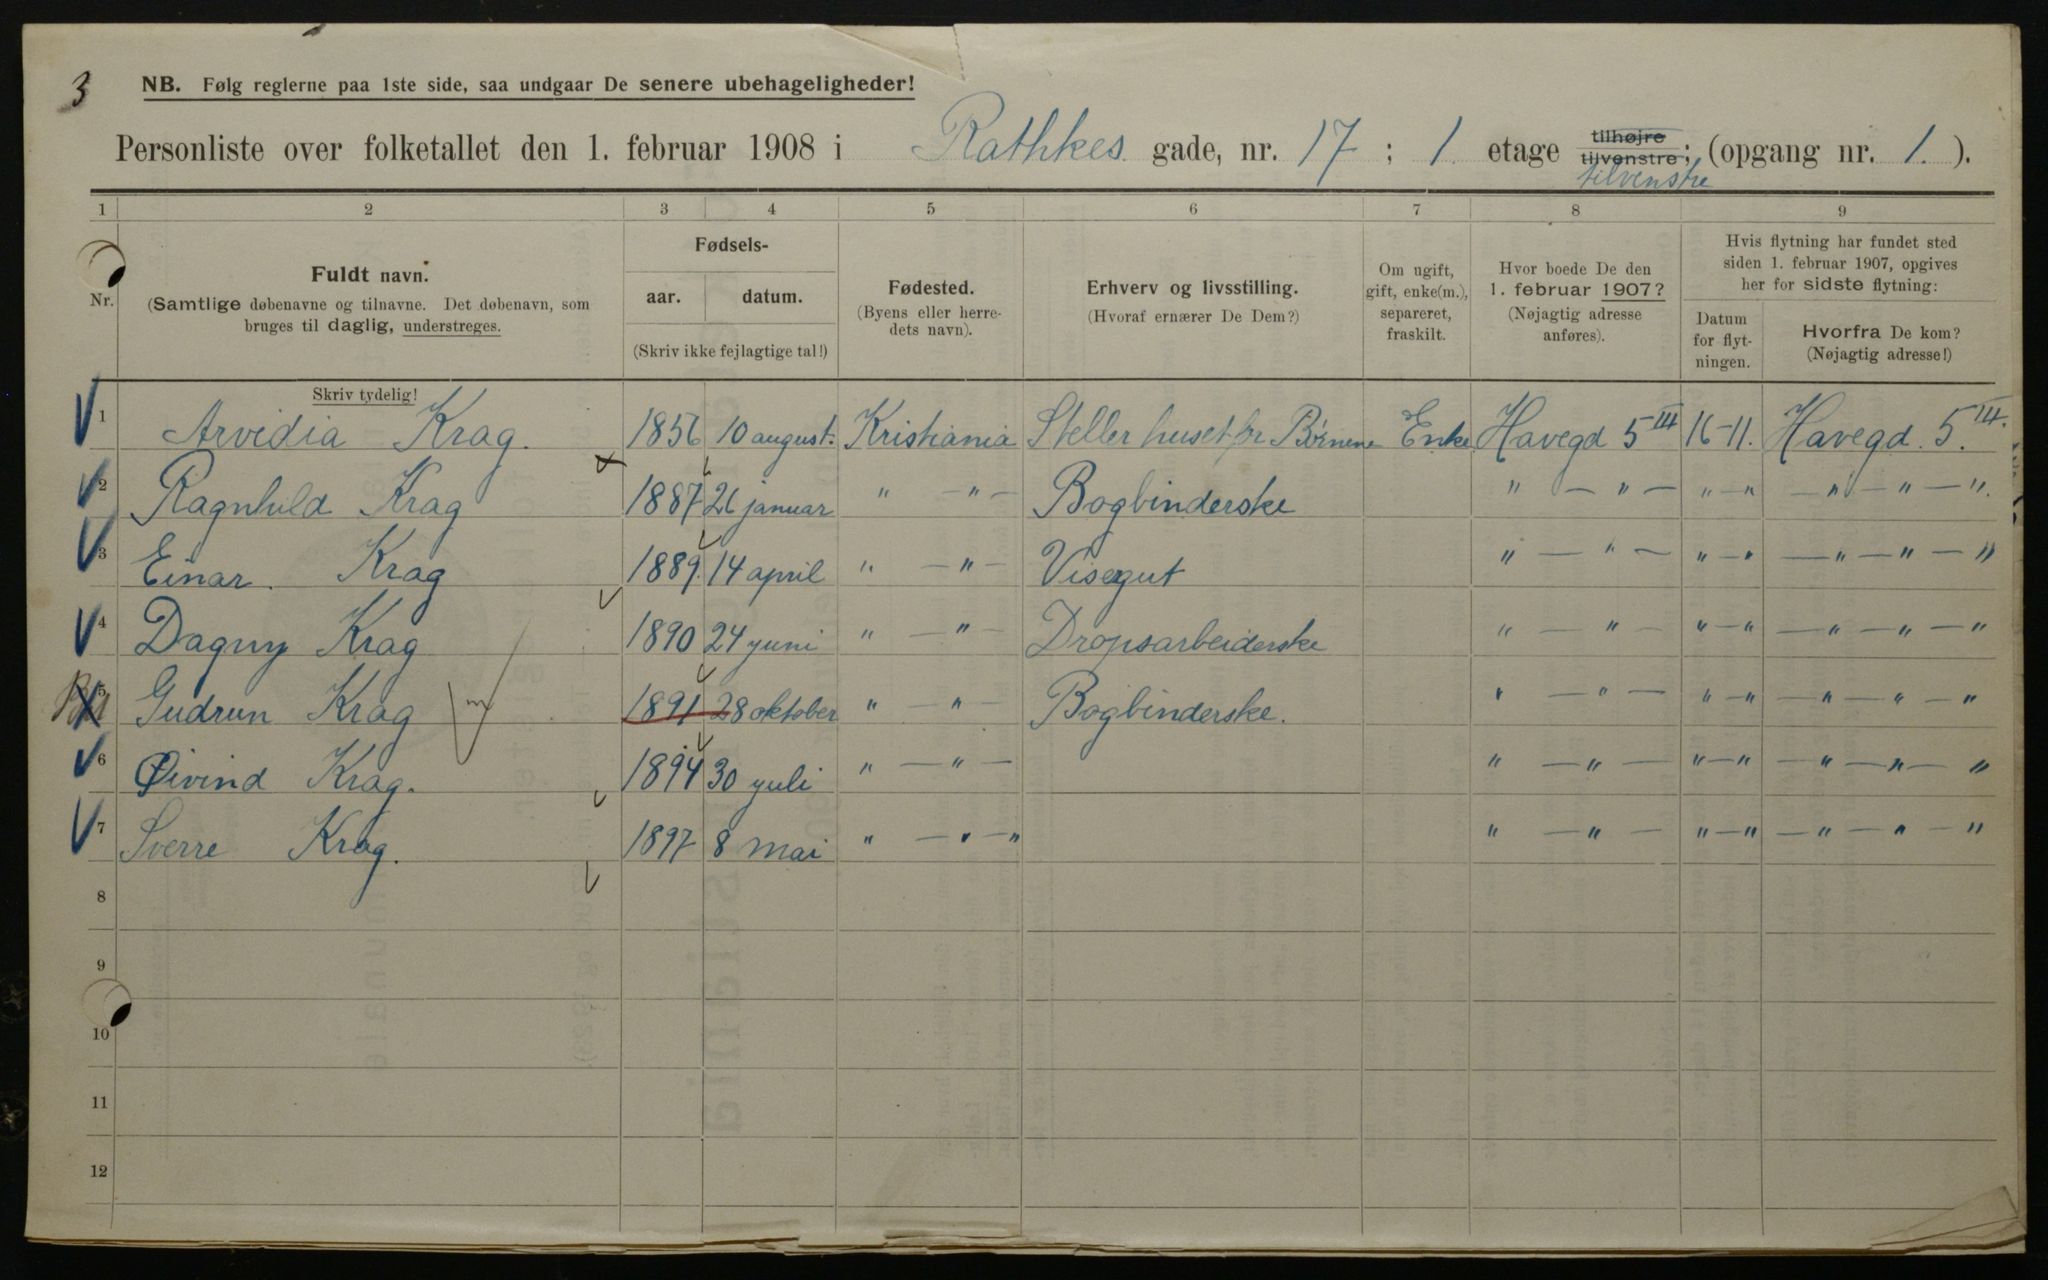 3
NB. Følg reglerne paa 1ste side, saa undgaar De senere ubehageligheder!
Personliste over folketallet den 1. februar 1908 i Rathkes gade, nr. 17 ; 1 etage tilhøjre tilvenstre; tilvenstre (opgang nr. 1. ).
1 2 3 4 5 6 7 8 9
Nr.
Fuldt navn.
(Samtlige døbenavne og tilnavne. Det døbenavn, som
bruges til daglig, understreges.
Skriv tydelig!
Fødsels-
aar. datum.
(Skriv ikke fejlagtige tal!)
Fødested.
(Byens eller herre-
dets navn).
Erhverv og livsstilling.
(Hvoraf ernærer De Dem?)
Om ugift,
gift, enke(m.),
separeret,
fraskilt.
Hvor boede De den
1. februar 1907?
(Nøjagtig adresse
anføres).
Hvis flytning har fundet sted
siden 1. februar 1907, opgives
her for sidste flytning:
Datum
for flyt-
ningen.
Hvorfra De kom?
(Nøjagtig adresse!)
1 Arvidia Krag. 1856 10 august. Kristiania Steller huset for Børnene Enke Havegd 5 III 16-11. Havegd. 5. III.
2 Ragnhild Krag 1887 26 januar " — " — Bogbinderske " — " — " — " — " — " — ".
3 Einar. Krag 1889. 14 april " — " — Visergut " — " — " — " — " — " — "
4 Dagny Krag 1890 24 juni " — " — Dropsarbeiderske " — " — " — " — " — " — "
5 Gudrun Krag 1891 28 oktober " — " — Bogbinderske. " — " — " — " — " — " — "
6 Øivind Krag. 1894 30 yuli " — " — " — " — " — " — " — " — "
7 Sverre Krag. 1897 8 mai " — " — " " — " — " — " — " — " — "
8
9
10
11
12